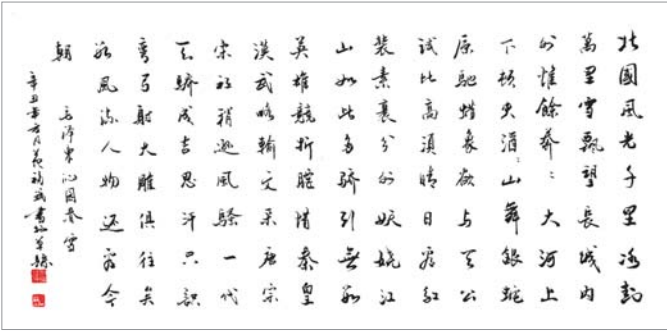 北國風光千里冰封
萬里雪飄望長城內
外惟餘莽々大河上
下頓失滔々山舞銀蛇
原馳蜡象欲与天公
試比高須晴日看紅
裝素裹分外妖嬈江
山如此多驕引無數
英雄競折腰惜秦皇
漢武略輸文采唐宗
宋祖稍遜風騷一代
天驕成吉思汗只識
彎弓射大雕俱往矣
數風流人物還看今
朝
毛澤東沁園春雪
辛丑年 月 書於